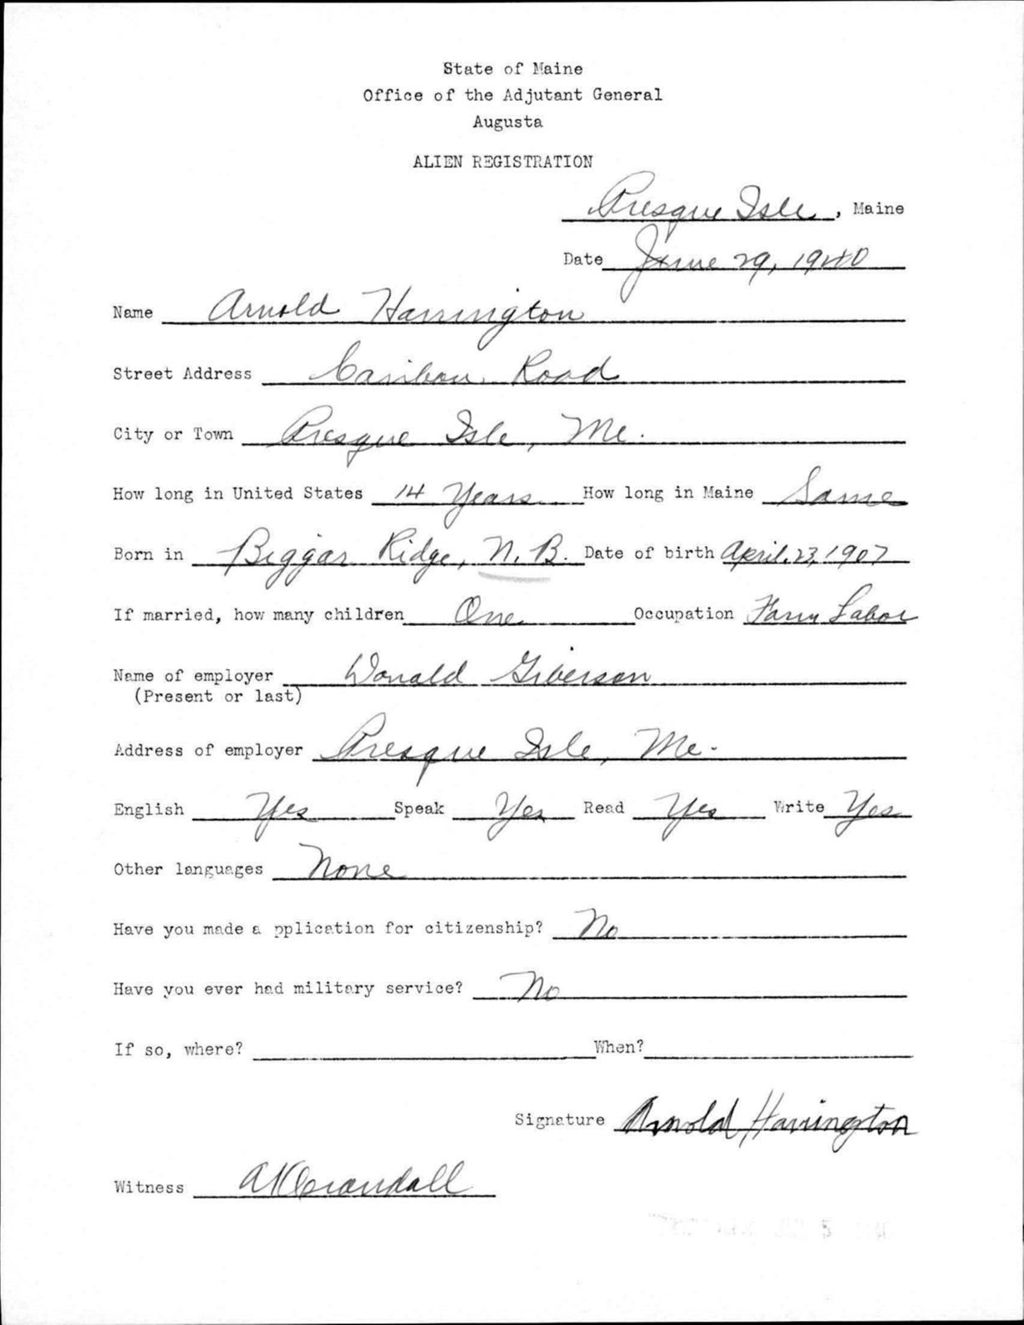 State of Maine
Office of the Adjutant General
Augusta
ALIEN REGISTRATION
Presque Isle, Maine
Date June 29, 1940
Name Arnold Harrington
Street Address Caribou Road
City or Town Presque Isle, Me.
How long in United States 14 Years How long in Maine Same
Born in Biggar Ridge, N.B. Date of birth April 23, 1907
If married, how many children One Occupation Farm Labor
Name of employer Donald Giberson
(Present or last)
Address of employer Presque Isle, Me.
English Yes Speak Yes Read Yes Write Yes
Other languages None
Have you made a pplication for citizenship? No
Have you ever had military service? No
If so, where? When?
Signature Arnold Harrington
Witness A K Crandall